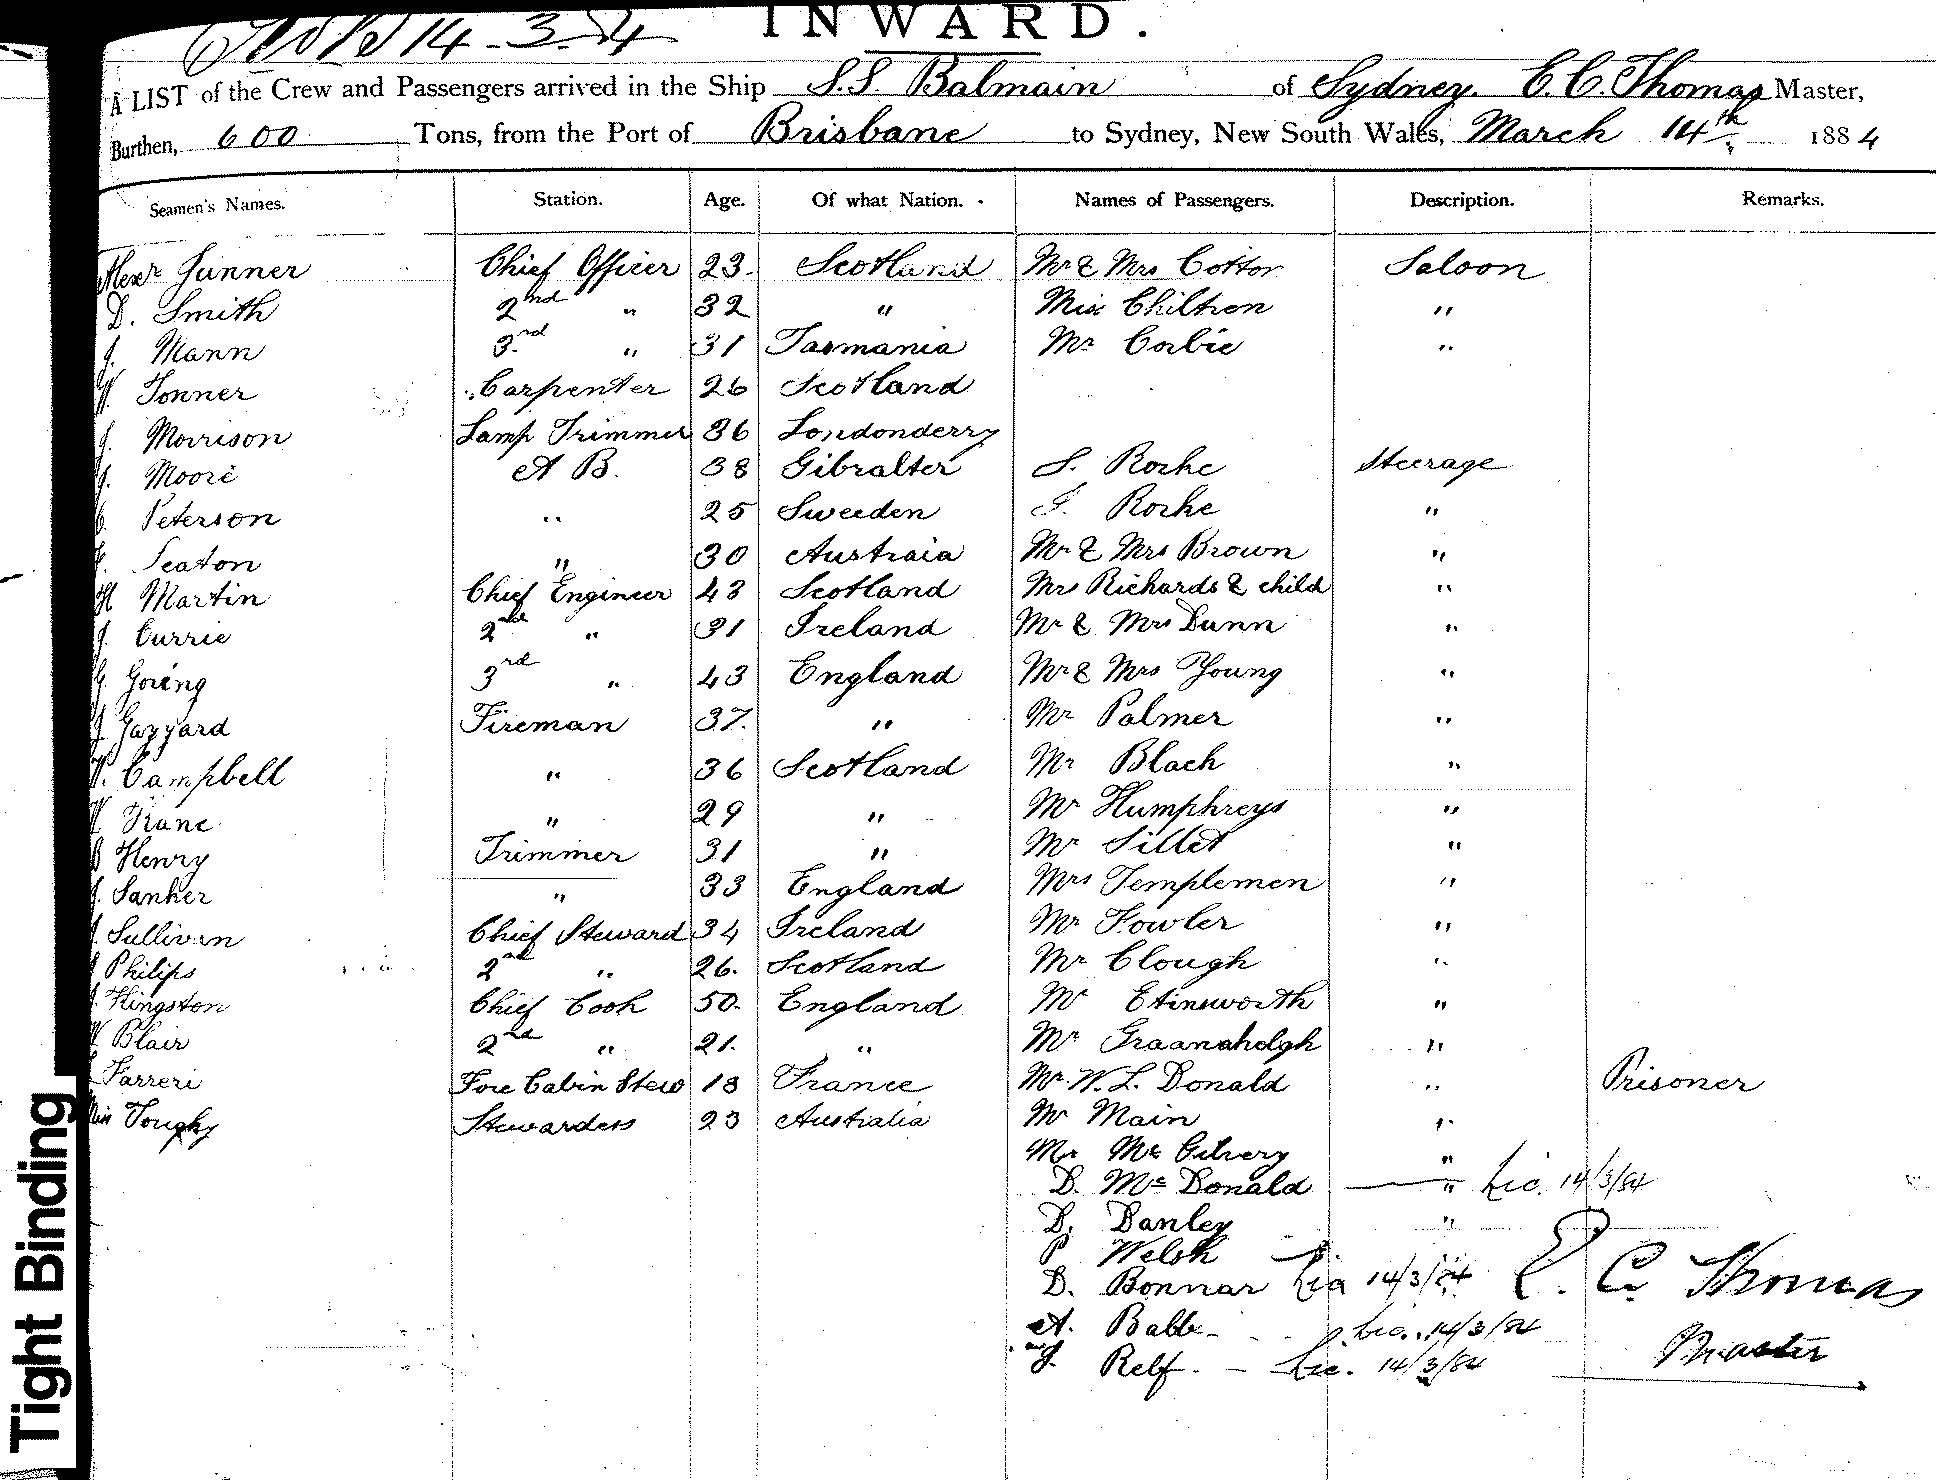 14-3-84
INWARD.
A LIST of the Crew and Passengers arrived in the Ship S.S. Balmain of Sydney. E. C. Thomas Master,
Burthen, 600 Tons, from the Port of Brisbane to Sydney, New South Wales, March 14th 1884
Seamen's Names. Station. Age. Of what Nation. Names of Passengers. Description. Remarks.
Alexr Gunner Chief Officer 23. Scotland Mr & Mrs Cotton Saloon
D. Smith 2nd " 32 " Miss Chiltron "
J. Mann 3rd " 31 Tasmania Mr Corbie "
W. Tonner Carpenter 26 Scotland
J. Morrison Lamp Trimmer 36 Londonderry
J. Moore A B. 38 Gibralter S. Rorke Steerage
C. Peterson " 25 Sweeden J. Rorke "
Seaton " 30 Austraia Mr & Mrs Brown "
H Martin Chief Engineer 43 Scotland Mrs Richards & child "
J. Currie 2nd " 31 Ireland Mr & Mrs Dunn "
G. Going 3rd " 43 England Mr & Mrs Young "
J Gazzard Fireman 37. " Mr Palmer "
W. Campbell " 36 Scotland Mr Black "
W Frane " 29 " Mr Humphreys "
B Henry Trimmer 31 " Mr Sillet "
J. Sanker " 33 England Mrs Templemen "
J. Sullivan Chief Steward 34 Ireland Mr Fowler "
J Philips 2nd " 26. Scotland Mr Clough "
J. Kingston Chief Cook 50. England Mr Etinsworth "
W Blair 2nd " 21. " Mr Graanaholgh "
Farreri Fore Cabin Stew 18 France Mr W. L. Donald " Prisoner
Miss Toughy Stewardess 23 Australia Mr Main "
Mr Mc Gilvery "
D. Mc Donald " Lic. 14/3/84
D. Danley "
P Welsh "
D. Bonnar Lic 14/3/84 E. C. Thomas
A. Balb Lic. 14/3/84 Master
J. Relf. Lic. 14/3/84
Tight Binding